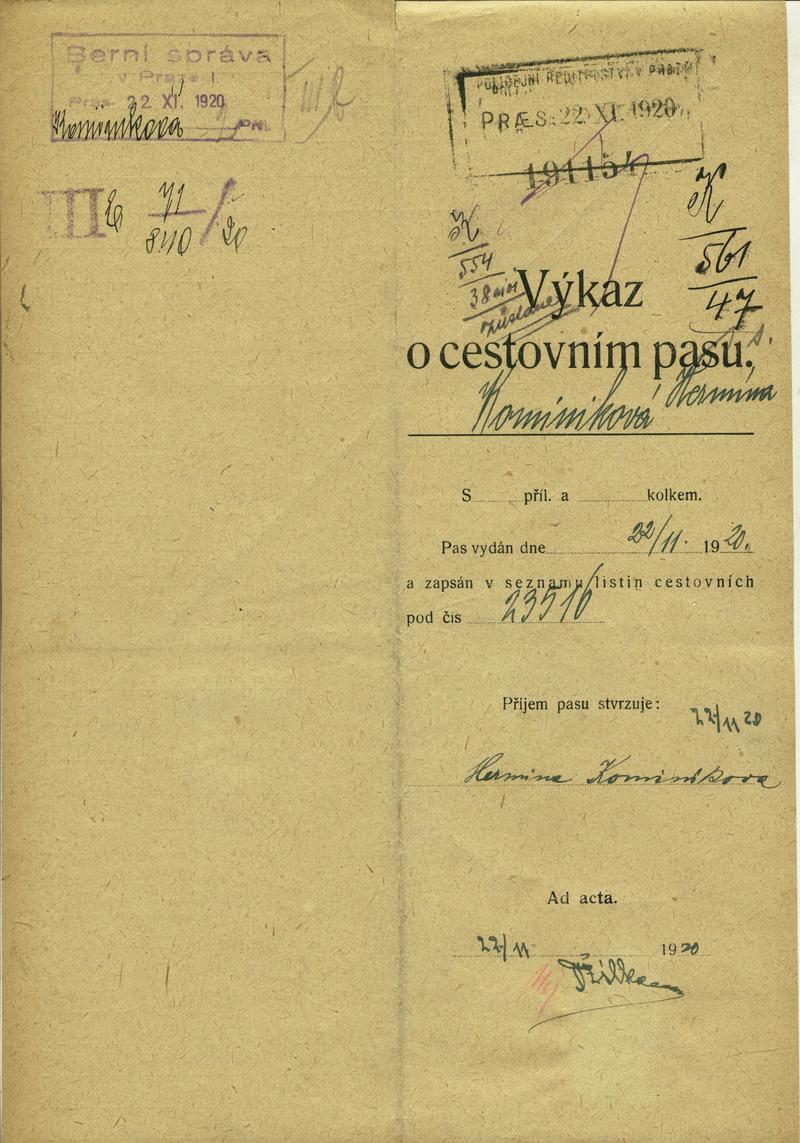 Berní správa
v Praze I.
Præs. 22. XI. 1920
Kominíková
III
71
840 / 20
POLICEJNÍ ŘEDITELSTVÍ V PRAZE
PRÆS. 22. XI. 1920
191154
K
554
38
K
561
47
Výkaz
o cestovním pasu.
Kominiková Hermína
S příl. a kolkem.
Pas vydán dne 22/11. 1920.
a zapsán v seznamu listin cestovních
pod čís 23516
Příjem pasu stvrzuje:
22/11 20
Hermina Kominikova
Ad acta.
22/11 1920